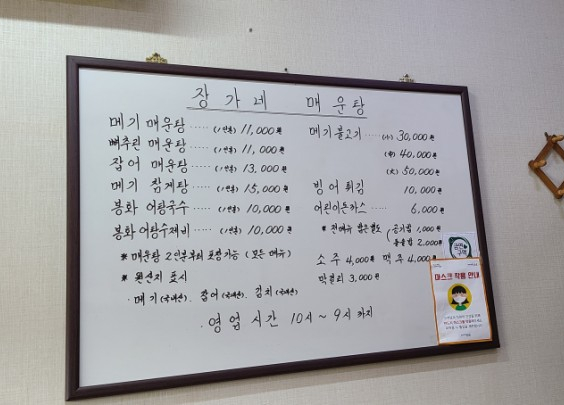 장가네 매운탕
메기 매운탕 ····· (1인분) 11,000원
빠추린 매운탕 ··· (1인분) 11,000원
잡어 매운탕 ····· (1인분) 13,000원
메기 참게탕 ···· (1인분) 15,000원
봉화 어탕국수 ·· (1인분) 10,000원
봉화 어탕수제비 (1인분) 10,000원
※ 매운탕 2인분부터 포장가능 (모든 메뉴)
※ 원산지 표시
· 메기(국내산), 잡어(국내산), 김치(국내산)
메기불고기 ···· (小) 30,000원
(中) 40,000원
(大) 50,000원
빙어 튀김 10,000원
어린이돈까스 ·· 6,000원
※ 전메뉴 밥은별도 (공기밥 1,000원
돌솥밥 2,000원
소주 4,000원 맥주 4,000원
막걸리 3,000원
· 영업시간 10시~9시까지
마스크 착용 안내